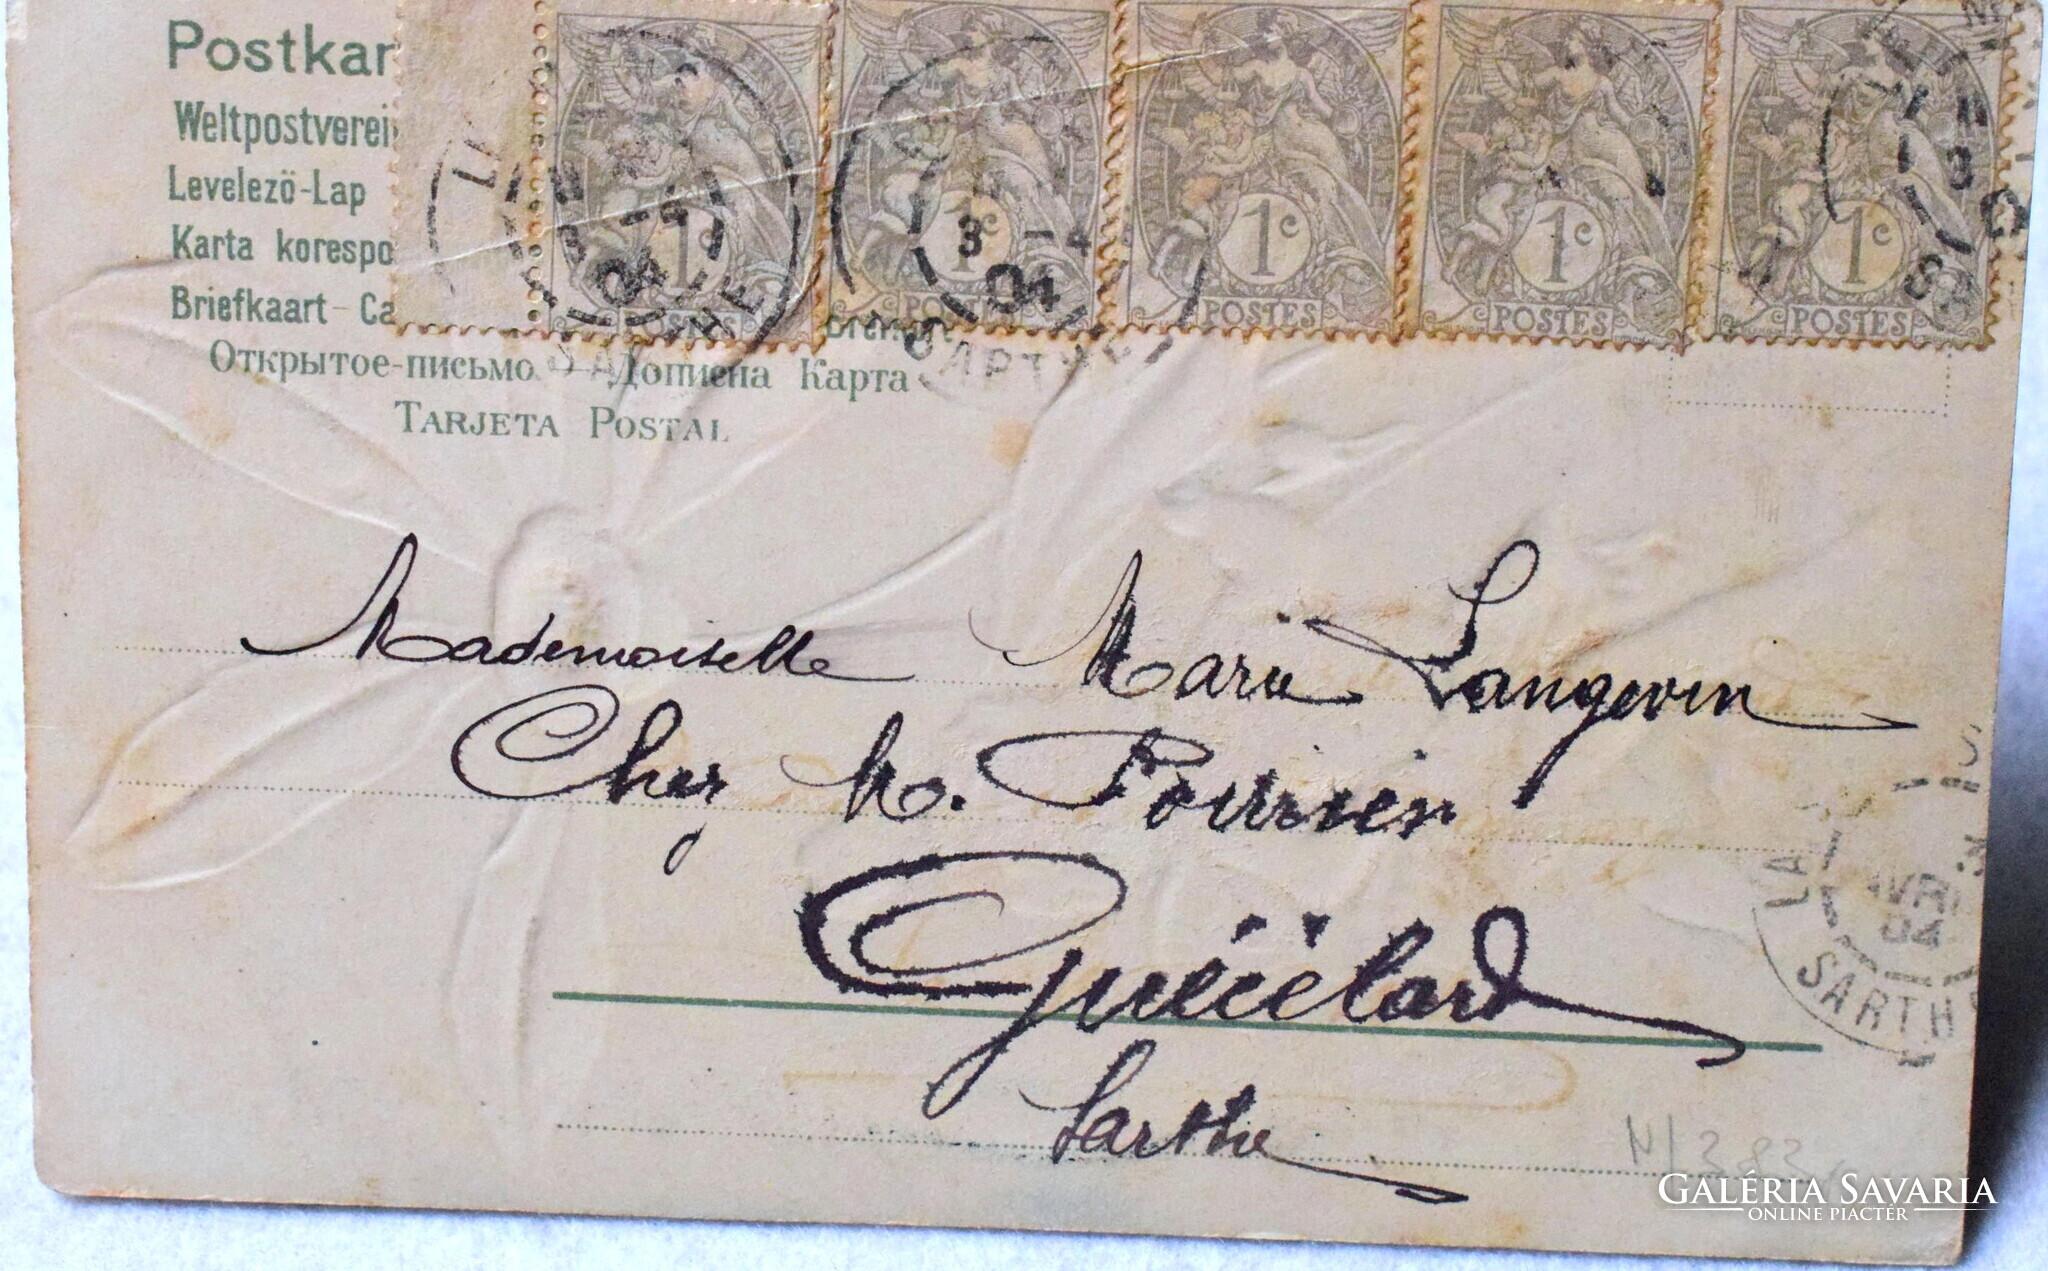 Postkar
Weltpostverei
Levelező-Lap
Karta korespo
Briefkaart - Ca
Открытое-письмо — Дописна Карта
TARJETA POSTAL
1c 1c 1c 1c 1c
POSTES POSTES POSTES POSTES POSTES
3 -4
04
SARTHE
Mademoiselle Marie Langevin
Chez M. Poirrier
Guécélard
Sarthe
AVRIL
04
SARTH
N/383
GALÉRIA SAVARIA
ONLINE PIACTÉR